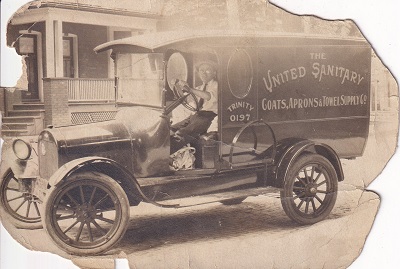 THE
UNITED SANITARY
COATS, APRONS & TOWEL SUPPLY CO.
TRINITY
0197